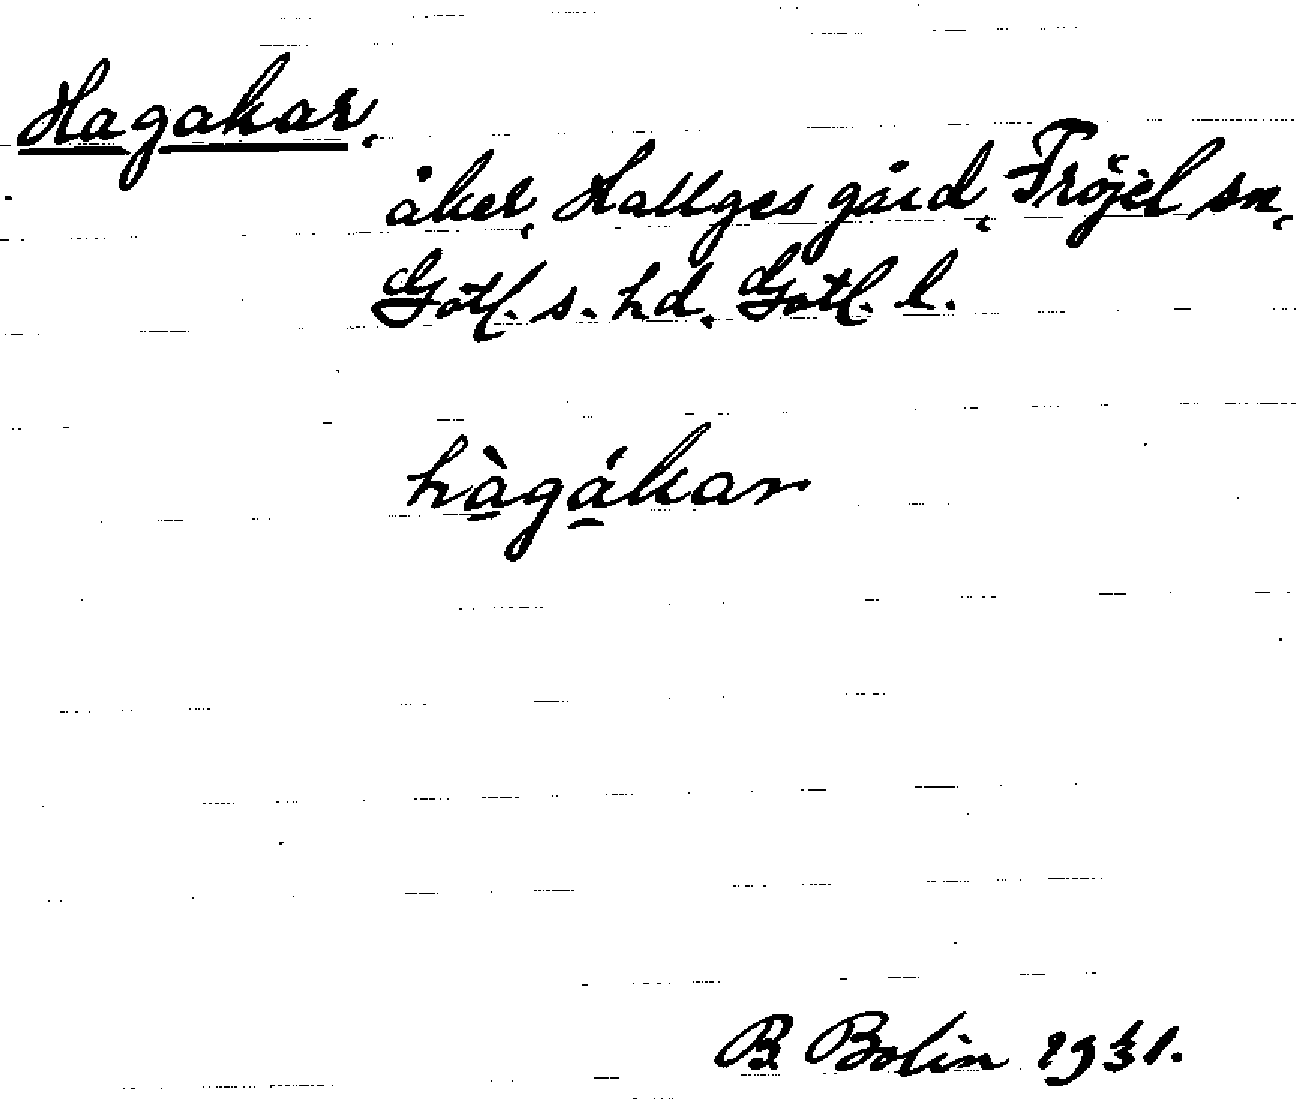 Hagakar,
åker, Hallges gård, Fröjel sn,
Gotl. s. hd. Gotl. l.
hàgákar
B Bolin 1931.